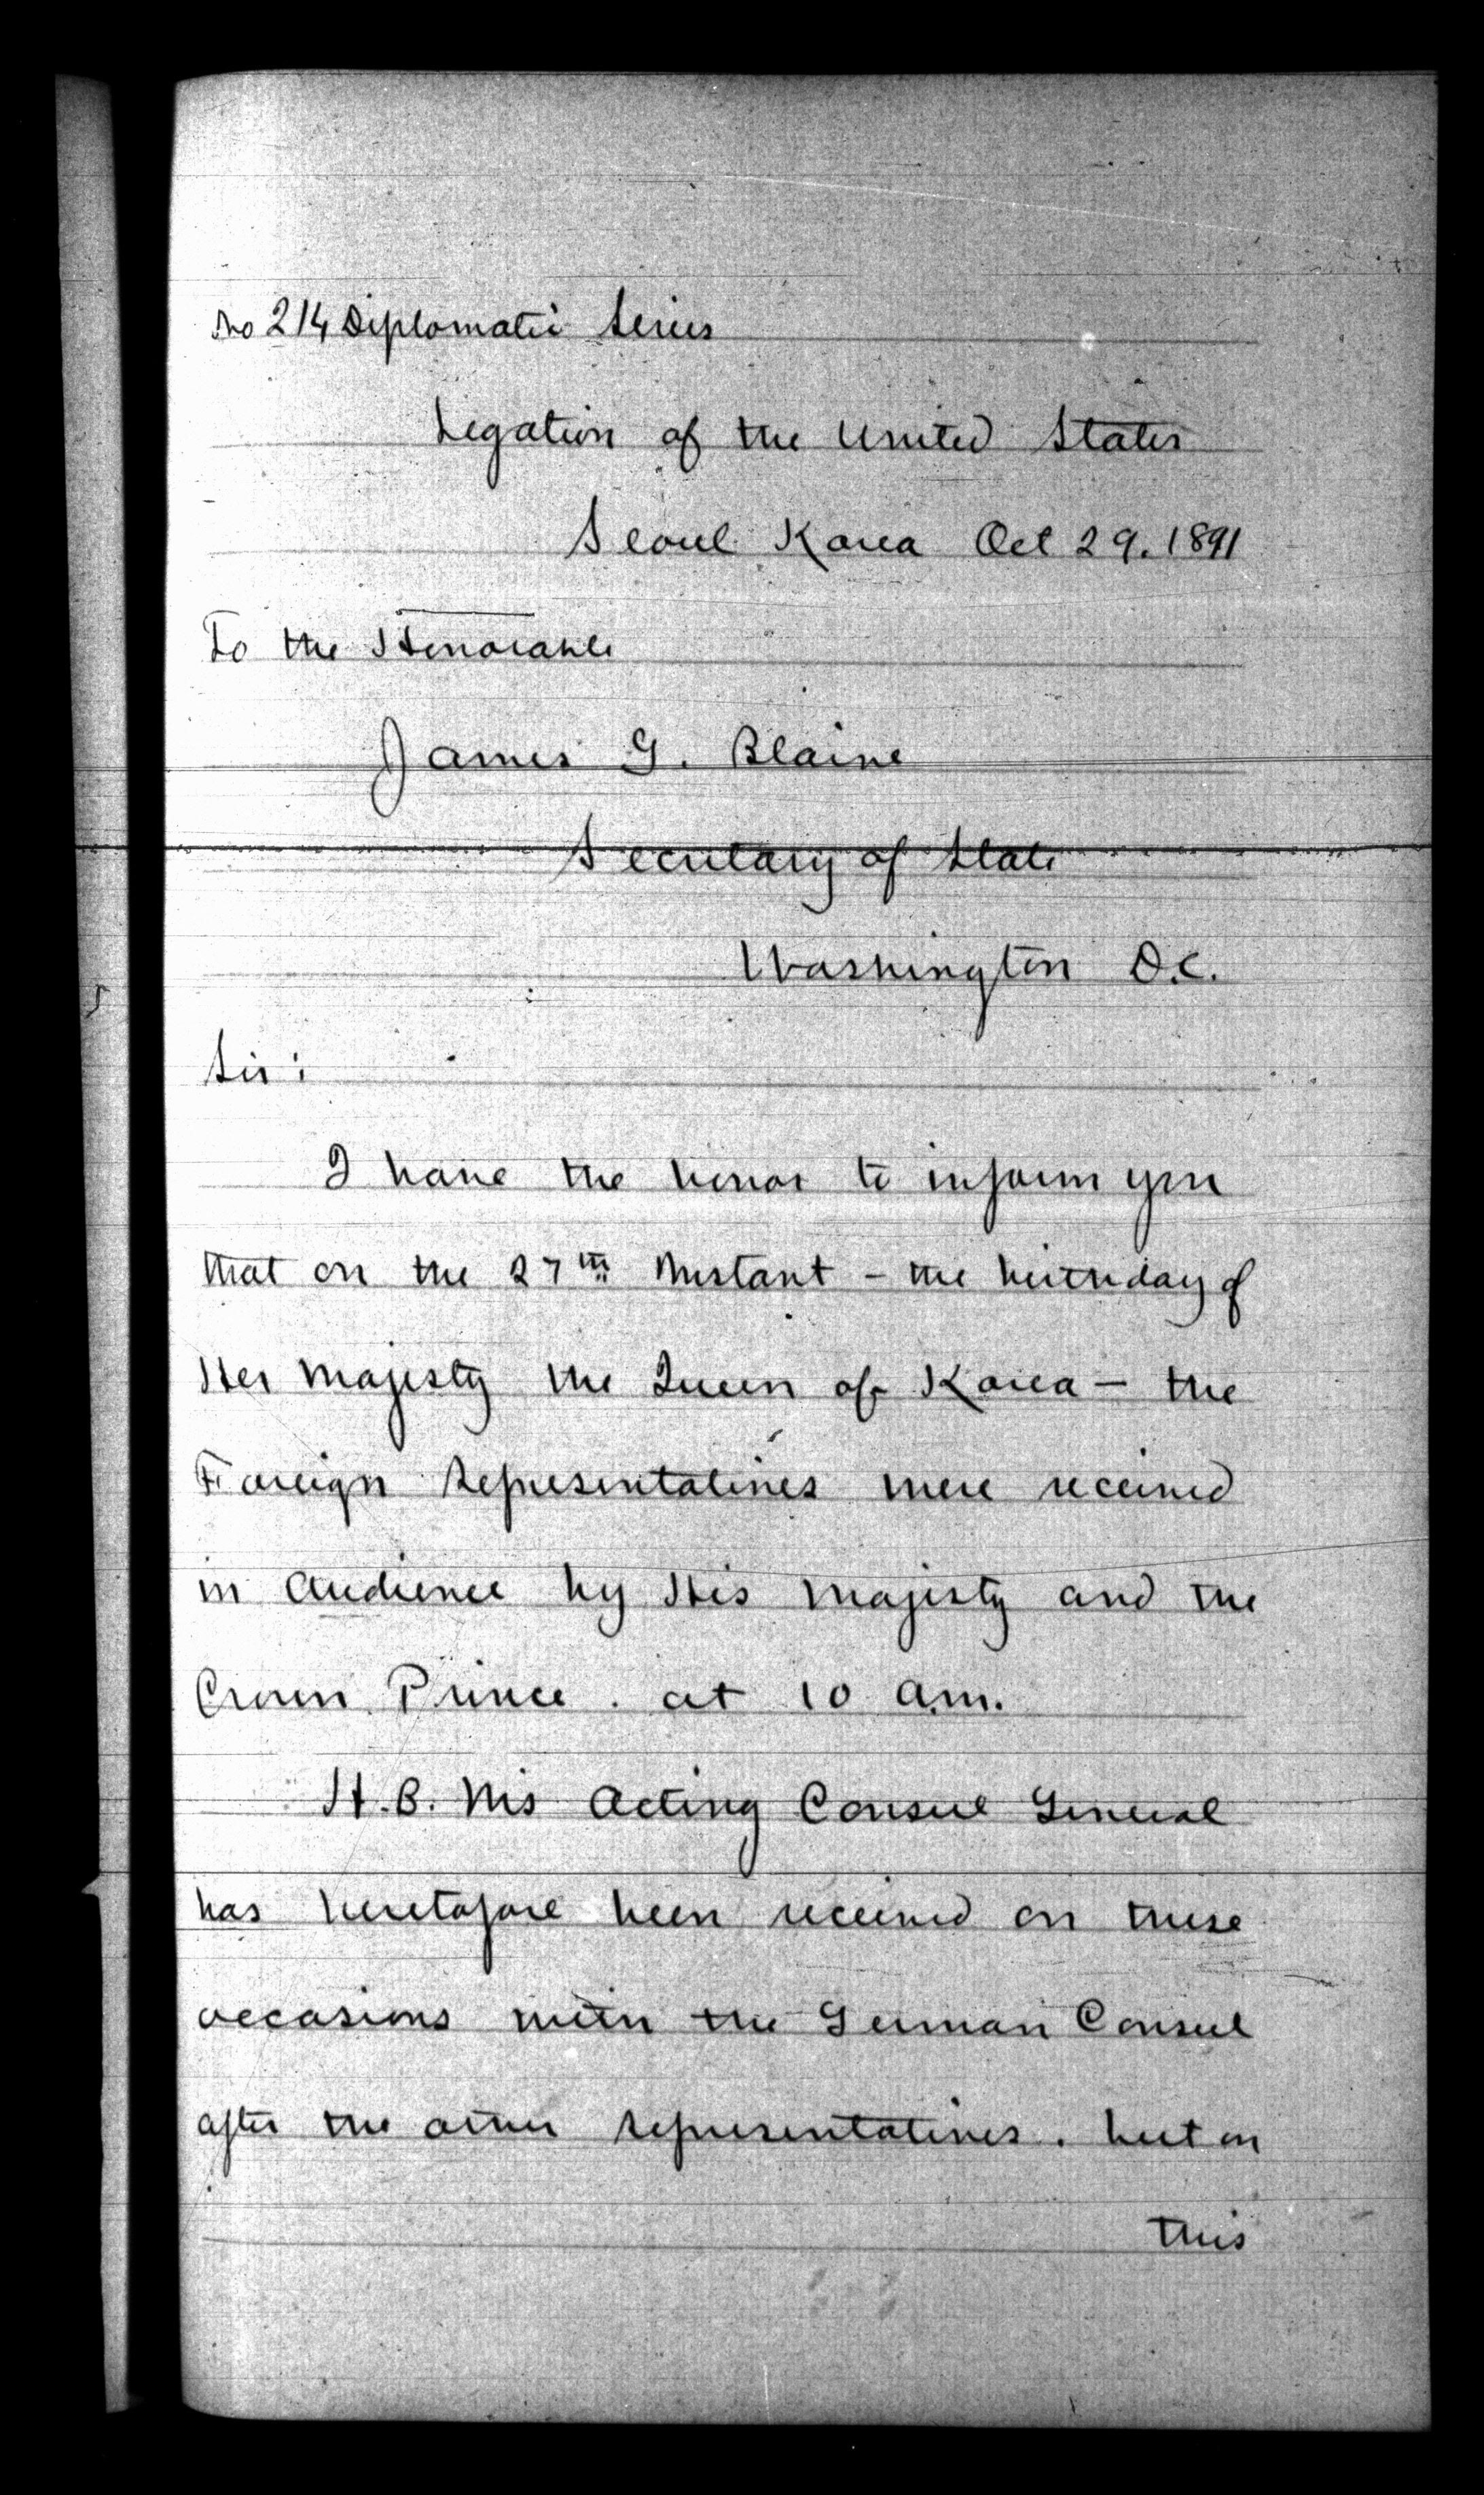 No 214 Diplomatic Series
Legation of the United States
Seoul Korea Oct 29. 1891
To the Honorable
James G. Blaine
Secretary of State
Washington D.C.
Sir:
I have the honor to inform you
that on the 27th Instant – the birthday of
Her Majesty the Queen of Korea – the
Foreign Representatives were received
in audience by His Majesty and the
Crown Prince. at 10 a.m.
H.B.M's Acting Consul General
has heretofore been received on these
occasions with the German Consul
after the other representatives. but on
this